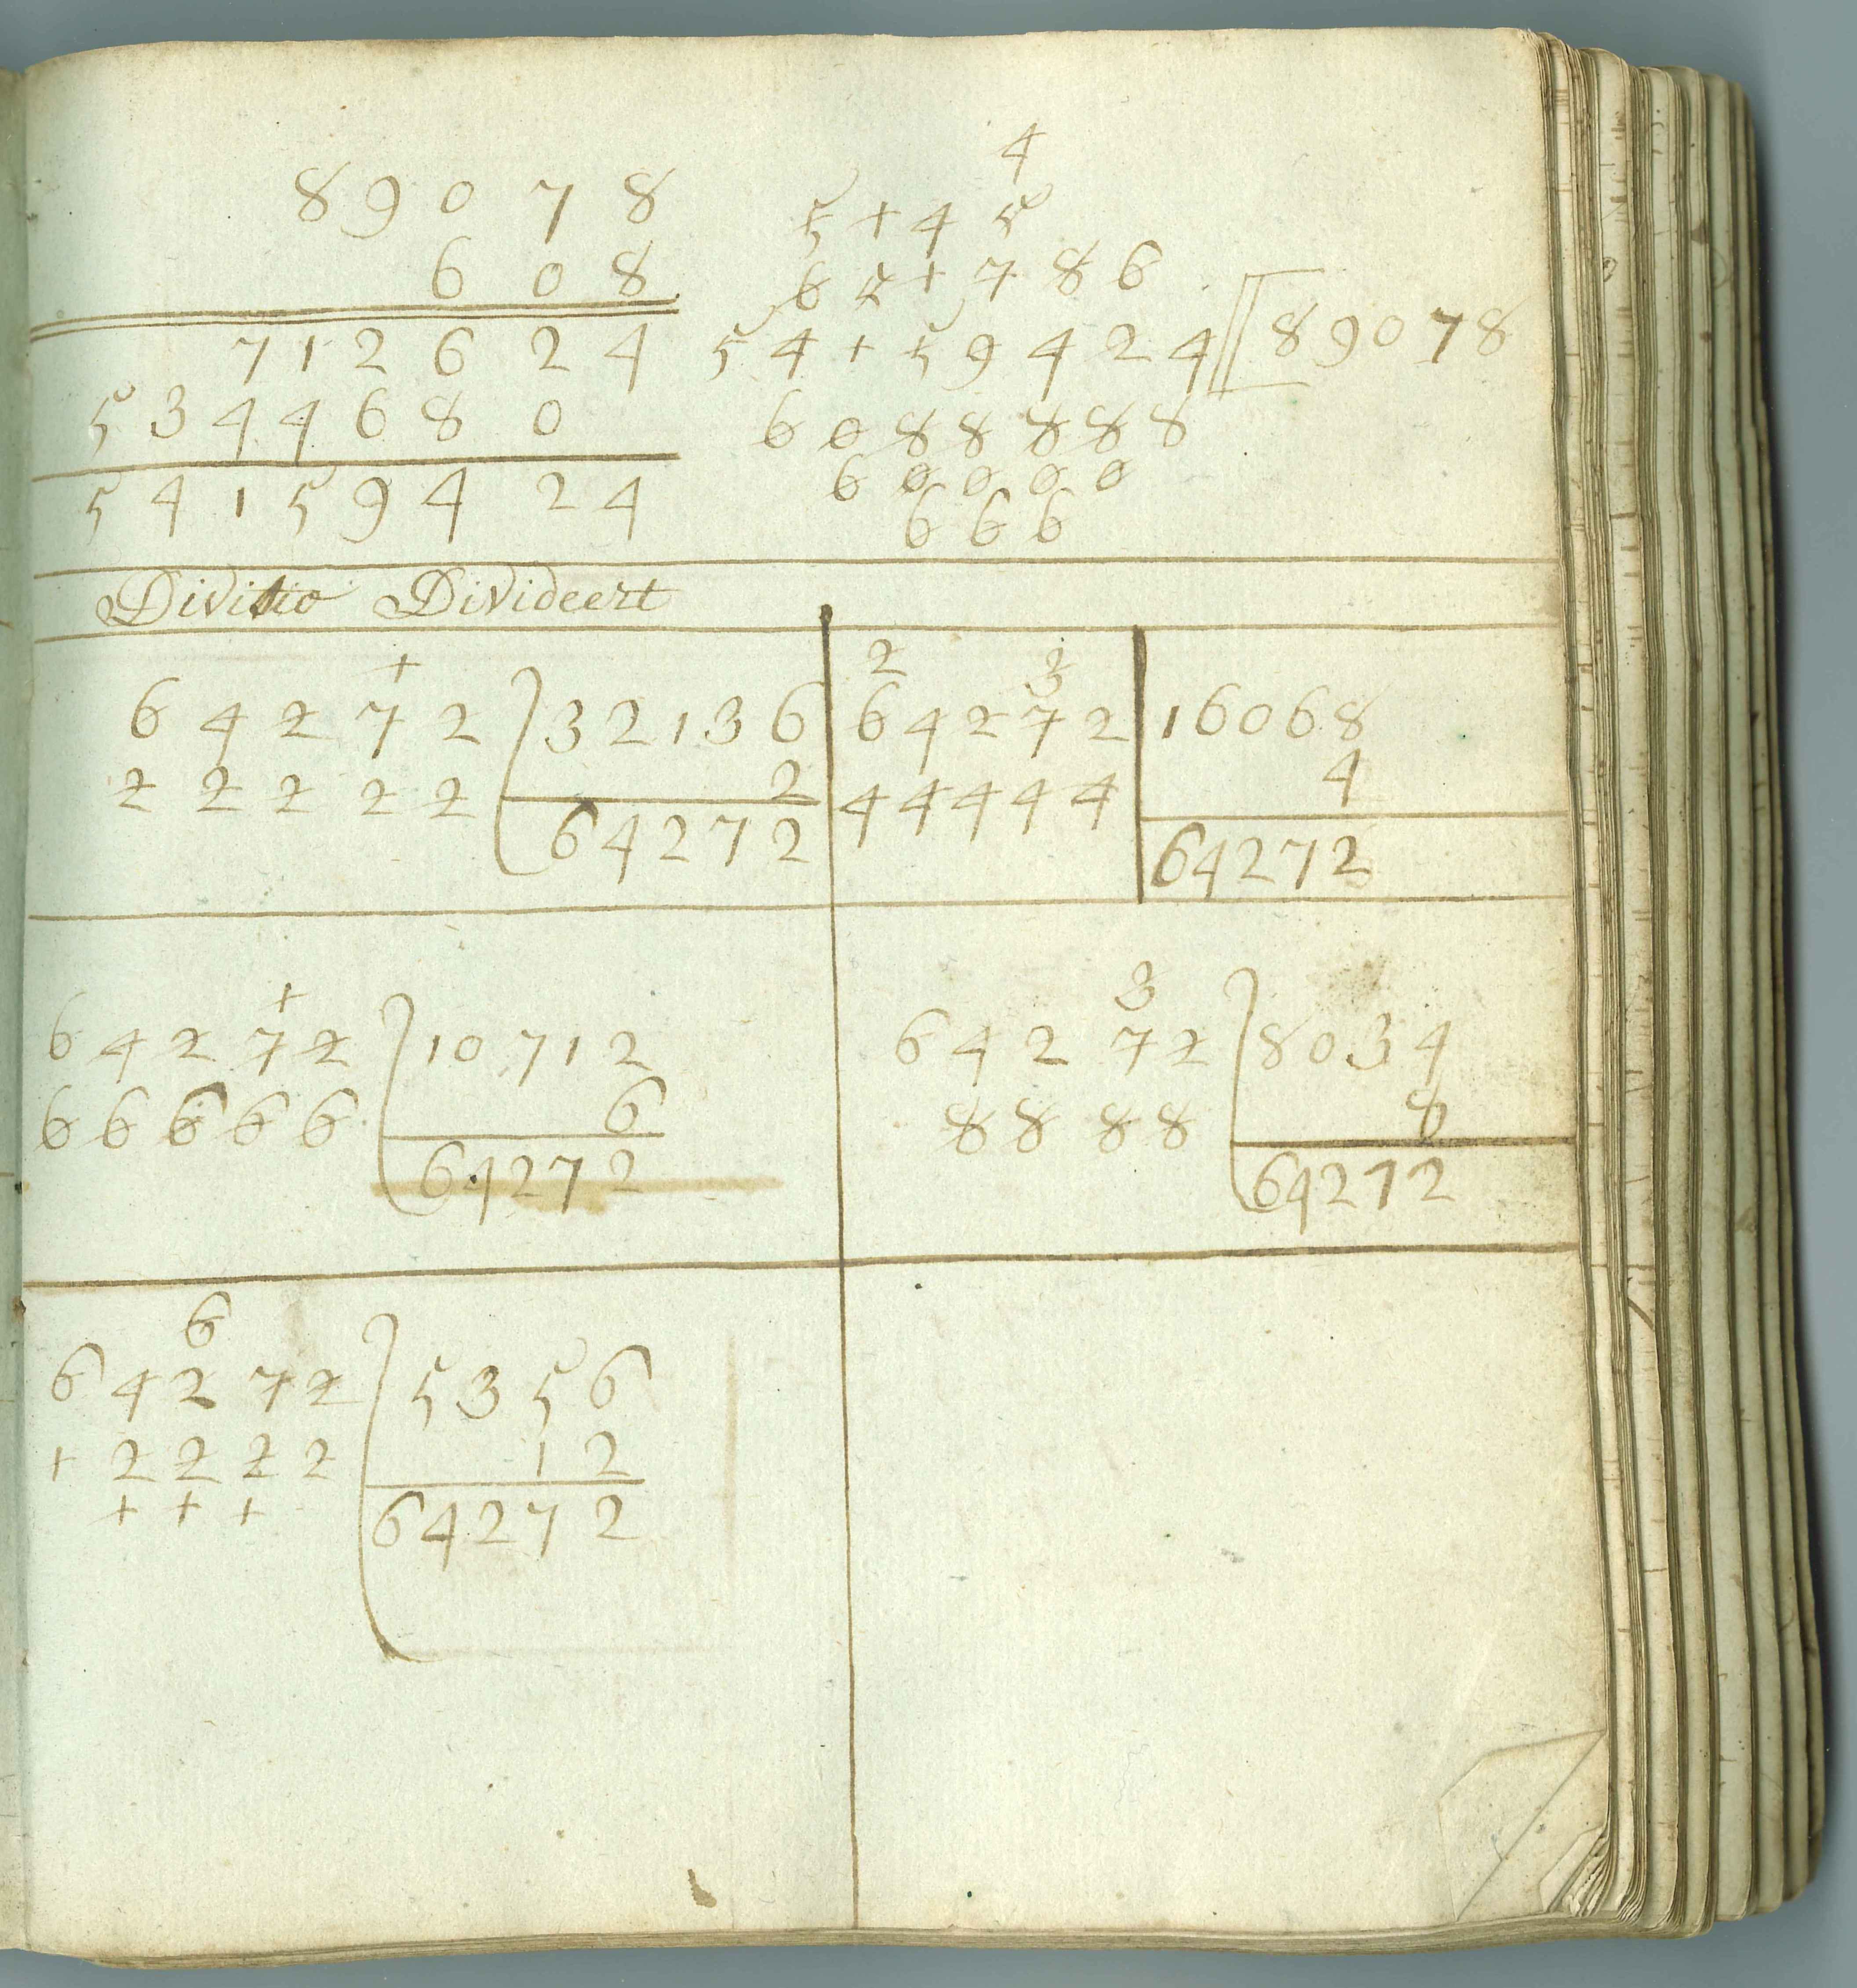 89078
608
712624
5344680
54159424
4
5145
621786
54159424 89078
6088888
60000
666
Divisio Divideert
1
64272 32136
22222 2
64272
2 3
64272 16068
44444 4
64272
1
64272 10712
66666 6
64272
3
64272 8034
8888 8
64272
6
64272 5356
12222 12
111 64272